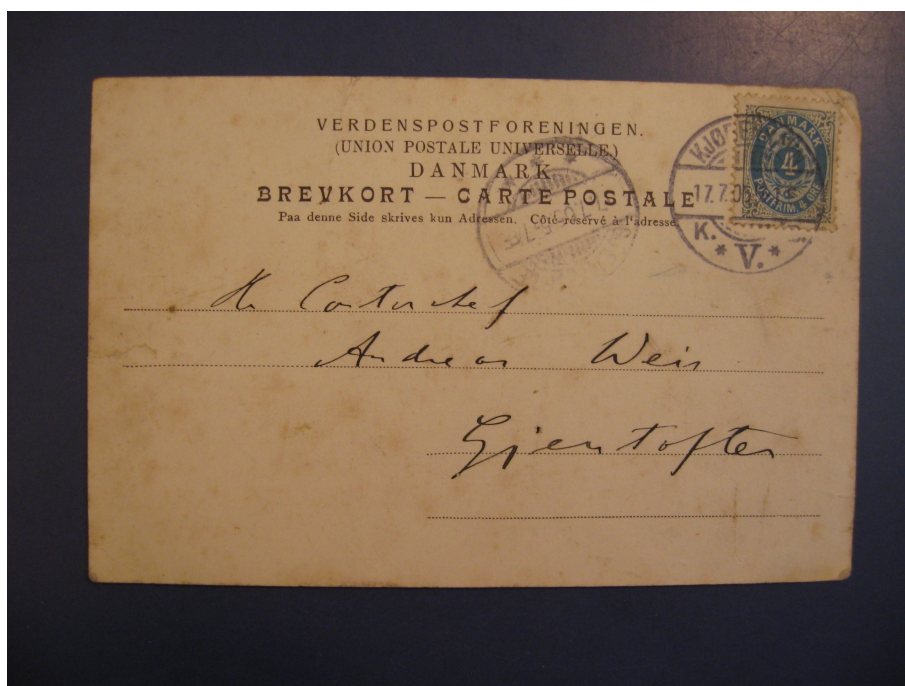 VERDENSPOSTFORENINGEN.
(UNION POSTALE UNIVERSELLE.)
DANMARK
BREVKORT — CARTE POSTALE
Paa denne Side skrives kun Adressen. Côté réservé à l'adresse.
DANMARK
4
POSTFRIM. 4 ØRE
KJØB
17.7.05
K.
* V. *
Hr Contorchef
Andreas Weis
Gjentofte